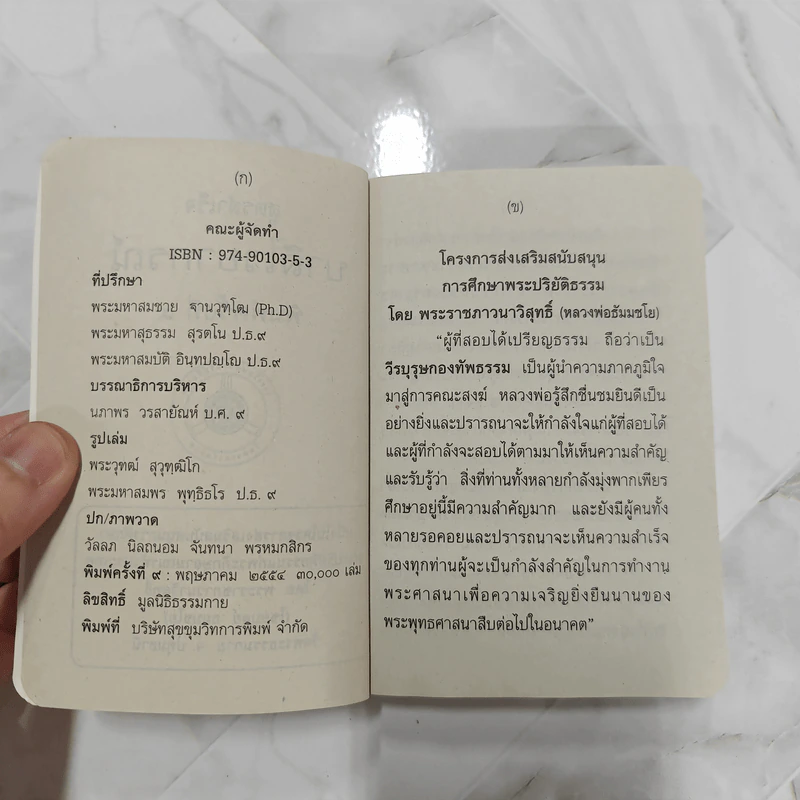 (ก)
คณะผู้จัดทำ
ISBN : 974-90103-5-3
ที่ปรึกษา
พระมหาสมชาย ฐานวุฑฺโฒ (Ph.D)
พระมหาสุธรรม สุรตโน ป.ธ.๙
พระมหาสมบัติ อินฺทปญฺโญ ป.ธ.๙
บรรณาธิการบริหาร
นภาพร วรสายัณห์ บ.ศ. ๙
รูปเล่ม
พระวุฑฒ์ สุวุฑฺฒิโก
พระมหาสมพร พุทฺธิธโร ป.ธ. ๙
ปก/ภาพวาด
วัลลภ นิลถนอม จันทนา พรหมกสิกร
พิมพ์ครั้งที่ ๙ : พฤษภาคม ๒๕๕๔ ๓๐,๐๐๐ เล่ม
ลิขสิทธิ์ มูลนิธิธรรมกาย
พิมพ์ที่ บริษัทสุขขุมวิทการพิมพ์ จำกัด
(ข)
โครงการส่งเสริมสนับสนุน
การศึกษาพระปริยัติธรรม
โดย พระราชภาวนาวิสุทธิ์ (หลวงพ่อธัมมชโย)
“ผู้ที่สอบได้เปรียญธรรม ถือว่าเป็น
วีรบุรุษกองทัพธรรม เป็นผู้นำความภาคภูมิใจ
มาสู่การคณะสงฆ์ หลวงพ่อรู้สึกชื่นชมยินดีเป็น
อย่างยิ่งและปรารถนาจะให้กำลังใจแก่ผู้ที่สอบได้
และผู้ที่กำลังจะสอบได้ตามมาให้เห็นความสำคัญ
และรับรู้ว่า สิ่งที่ท่านทั้งหลายกำลังมุ่งพากเพียร
ศึกษาอยู่นี้มีความสำคัญมาก และยังมีผู้คนทั้ง
หลายรอคอยและปรารถนาจะเห็นความสำเร็จ
ของทุกท่านผู้จะเป็นกำลังสำคัญในการทำงาน
พระศาสนาเพื่อความเจริญยิ่งยืนนานของ
พระพุทธศาสนาสืบต่อไปในอนาคต”